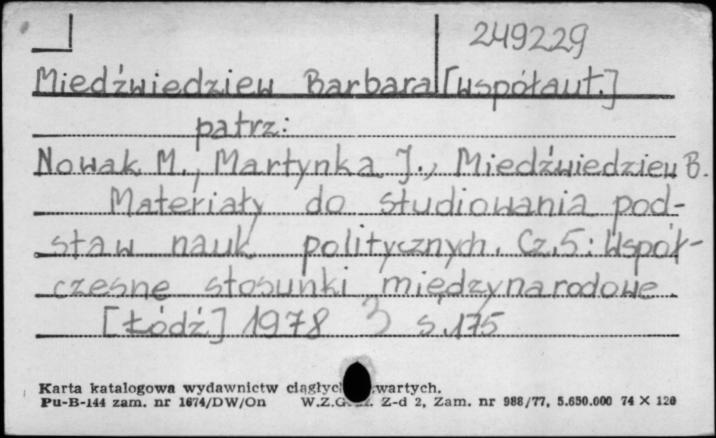 249229
Miedźwiedziew Barbara [współaut.]
patrz:
Nowak M., Martynka J., Miedźwiedziew B.
Materiały do studiowania pod-
staw nauk politycznych. Cz. 5: Współ-
czesne stosunki międzynarodowe.
[Łódź] 1978 s. 175
Karta katalogowa wydawnictw
Pu-B-144 zam. nr 1674/DW/On Z-d 2, Zam. nr 988/77, 5.650.000 74 X 120